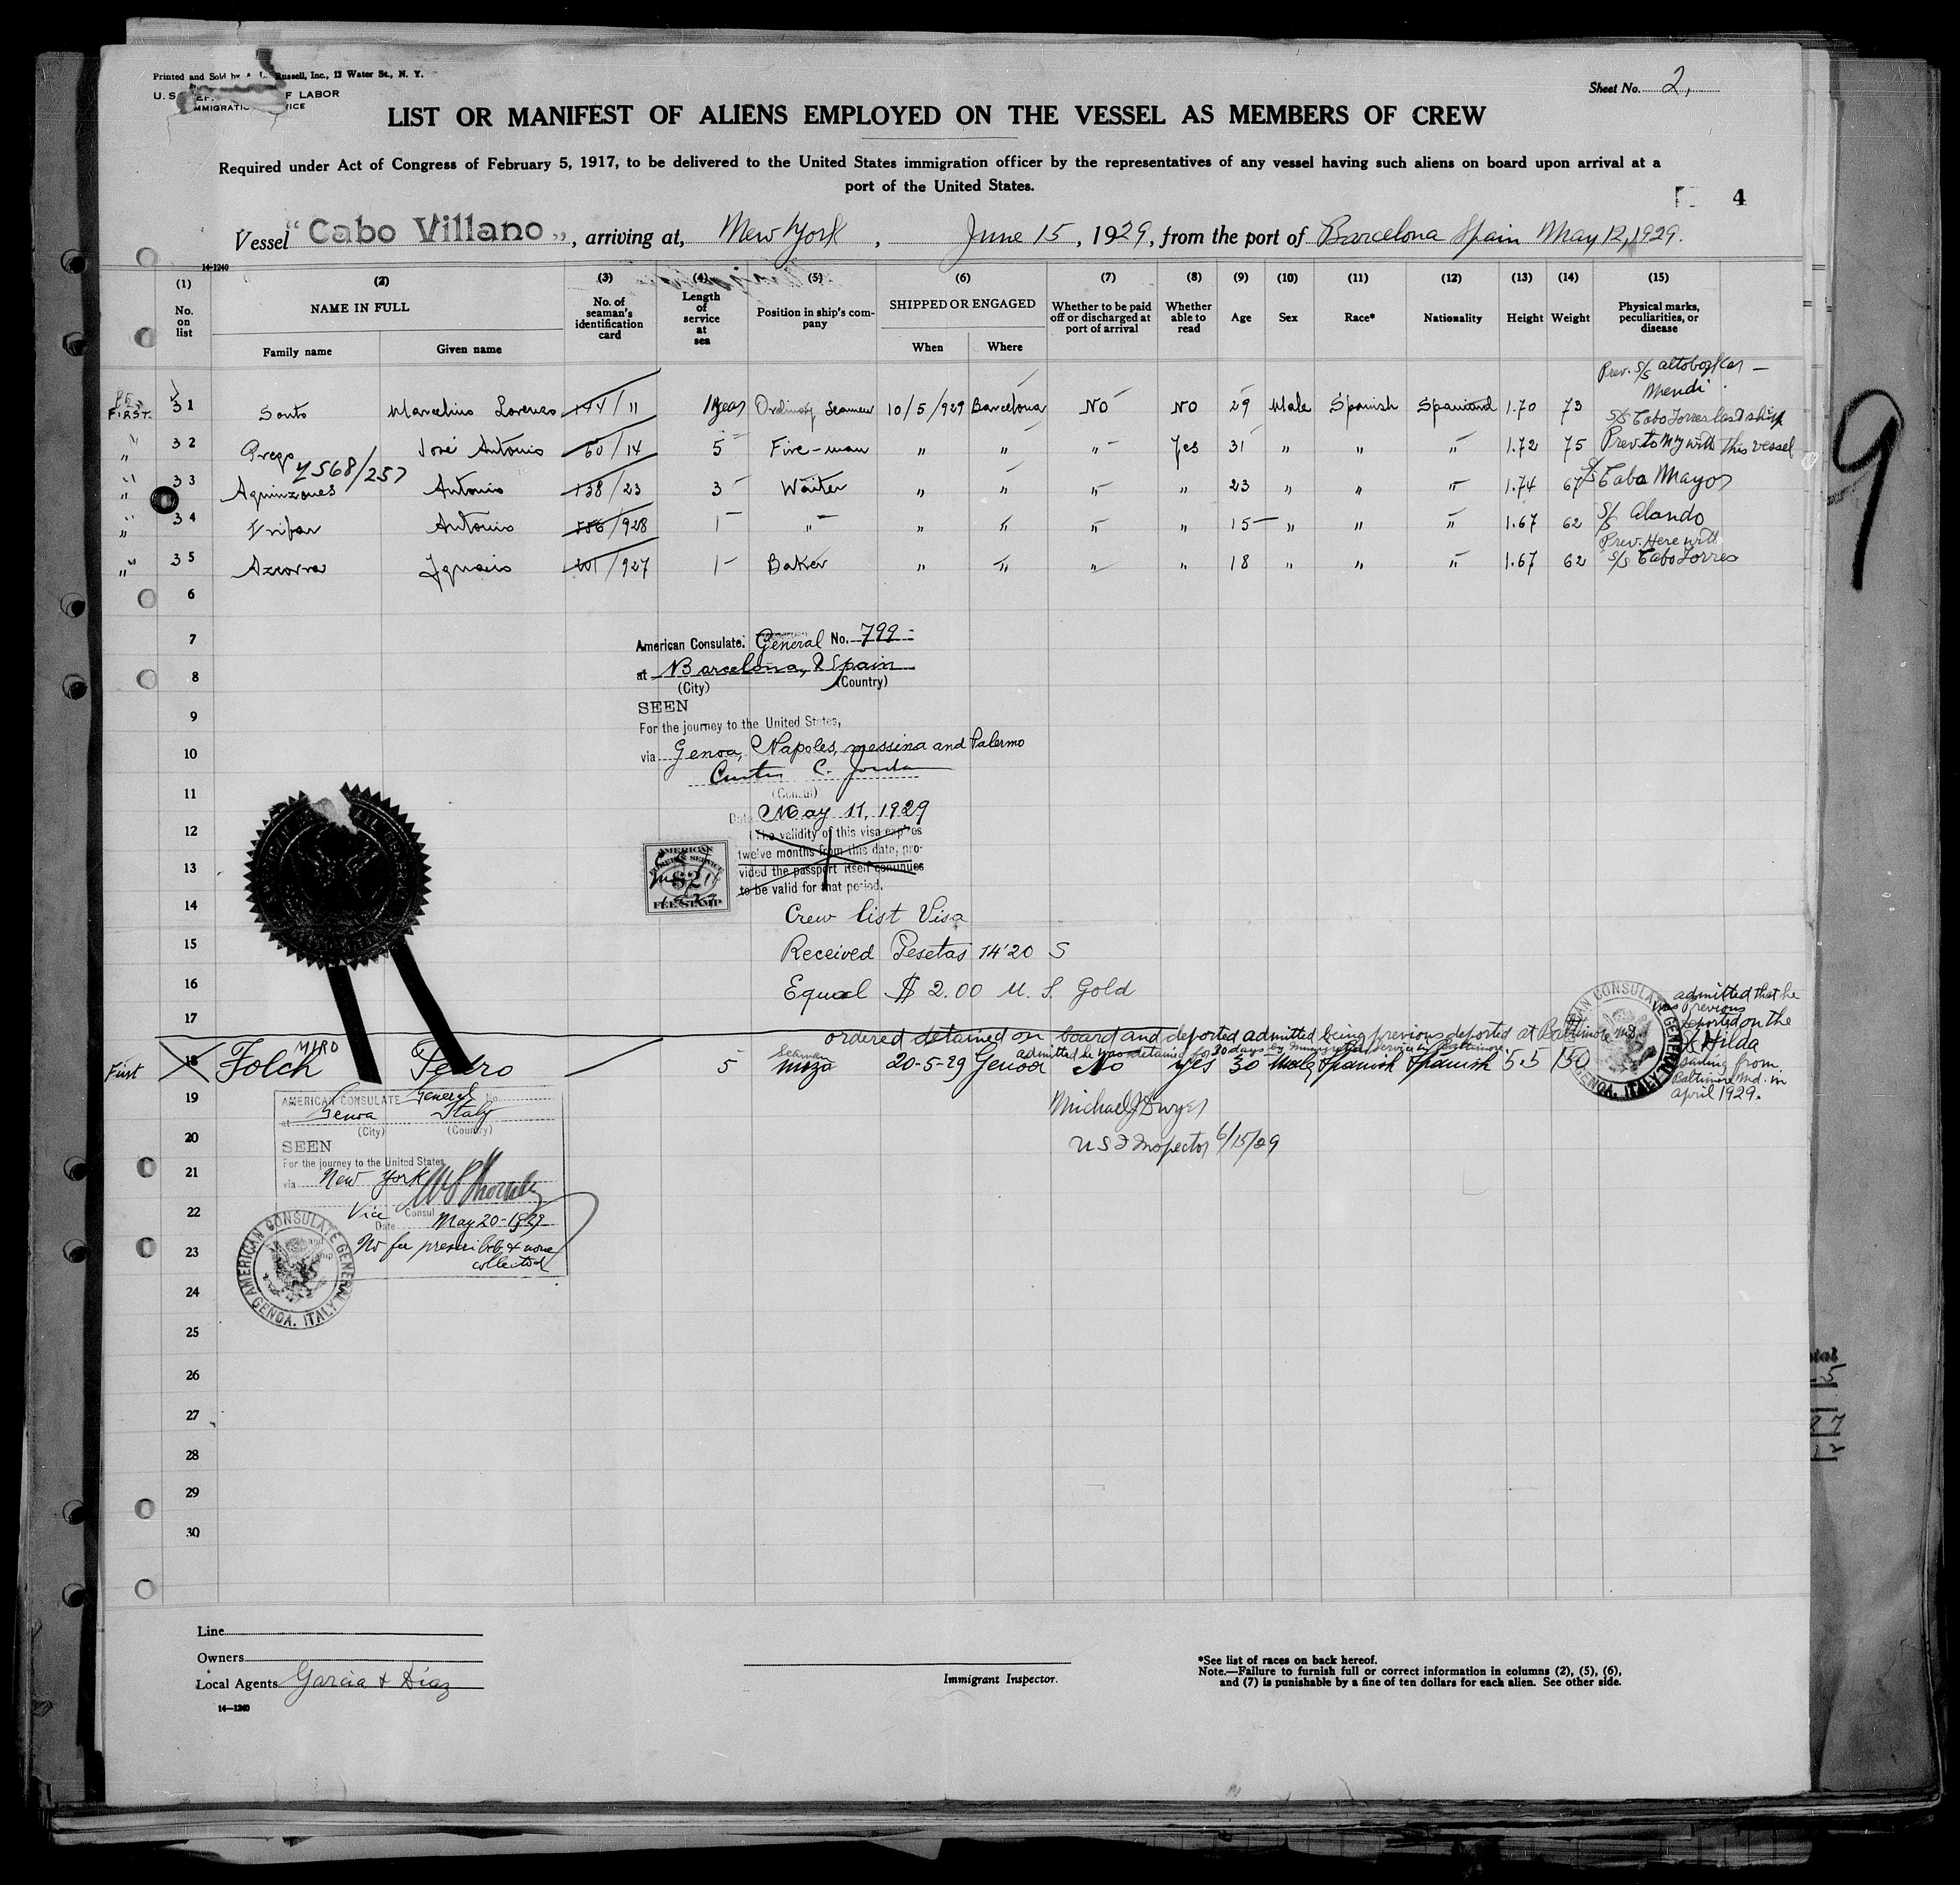 Printed and Sold by A. L. Russell, Inc., 13 Water St., N. Y.
U. S. DEP. OF LABOR
IMMIGRATION SERVICE
Sheet No. 2,
LIST OR MANIFEST OF ALIENS EMPLOYED ON THE VESSEL AS MEMBERS OF CREW
Required under Act of Congress of February 5, 1917, to be delivered to the United States immigration officer by the representatives of any vessel having such aliens on board upon arrival at a
port of the United States.
4
Vessel "Cabo Villano", arriving at, New York, June 15, 1929, from the port of Barcelona Spain May 12, 1929.
14-1240
(1) (2) (3) (4) (5) (6) (7) (8) (9) (10) (11) (12) (13) (14) (15)
No. on list
NAME IN FULL
Family name Given name
No. of seaman's identification card
Length of service at sea
Position in ship's company
SHIPPED OR ENGAGED
When Where
Whether to be paid off or discharged at port of arrival
Whether able to read
Age Sex Race* Nationality Height Weight
Physical marks, peculiarities, or disease
Prev. S/S
Mendi
FIRST. 31 Souto Marcelino Lorenzo 144/11 1 year Ordinary Seamen 10/5/929 Barcelona No No 29 Male Spanish Spaniard 1.70 73
S/S Cabo Torres last ship
" 32 Orego José Antonio 60/14 5 Fire-man " " " Yes 31 " " " 1.72 75 Prev. to NY with this vessel
4568/257
" 33 Aguinzones Antonio 138/23 3 Waiter " " " " 23 " " " 1.74 67 S/S Cabo Mayor
" 34 Uribar Antonio 586/928 1 " " " " " 15 " " " 1.67 62 S/S Alando
Prev. Here with
" 35 Azcorra Ignacio 201/927 1 Baker " " " " 18 " " " 1.67 62 S/S Cabo Torres
6
7
8
9
10
11
12
13
14
15
16
17
American Consulate. General No. 799
at Barcelona, Spain
(City) (Country)
SEEN
For the journey to the United States,
via Genoa, Napoles, messina and Palermo
Curtis C. Jordan
(Consul)
Date May 11, 1929
(The validity of this visa expires
twelve months from this date, pro-
vided the passport itself continues
to be valid for that period.
AMERICAN
FOREIGN SERVICE
$2
FEE STAMP
Crew list Visa
Received Pesetas 14'20 S
Equal $ 2.00 U. S. Gold
ordered detained on board and deported admitted being previous deported at Baltimore Md.
admitted he was detained for 30 days by Immigration Service in Baltimore
First 18 Folch MIRO Pedro 5 Seaman Mozo 20-5-29 Genoa No Yes 30 Male Spanish Spanish 5.5 150
admitted that he
was previous
deported on the
SS Hilda
sailing from
Baltimore Md. in
April 1929.
AMERICAN CONSULATE GENERAL
GENOA. ITALY
Michael J Dwyer
U S I Inspector 6/15/29
19
20
21
22
23
24
25
26
27
28
29
30
AMERICAN CONSULATE General No.
at Genoa Italy
(City) (Country)
SEEN
For the journey to the United States
via New York
Vice Consul
Date May 20-1929
No fee prescribed & none
collected
AMERICAN CONSULATE GENERAL
GENOA. ITALY
Line
Owners
Local Agents Garcia & Diaz
14-1240
Immigrant Inspector.
*See list of races on back hereof.
Note.—Failure to furnish full or correct information in columns (2), (5), (6),
and (7) is punishable by a fine of ten dollars for each alien. See other side.
9